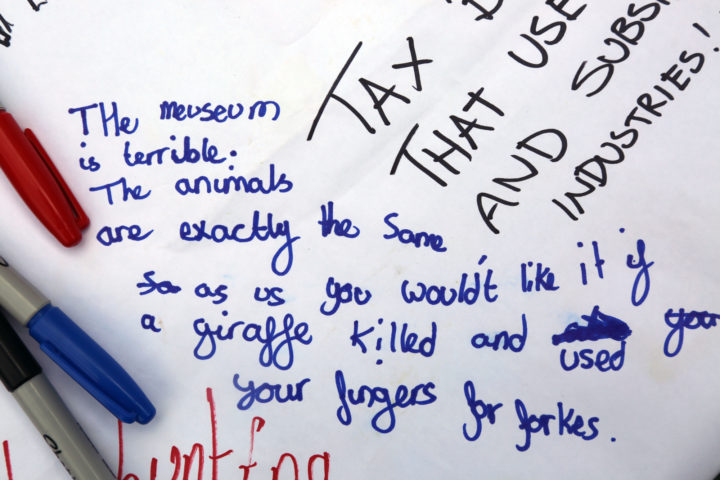 TAX
THAT USE
AND SUBSI
INDUSTRIES!
THe meuseum
is terrible.
The animals
are exactly the same
so as us you would't like it if
a giraffe killed and used your
your fingers for forkes.
hunting